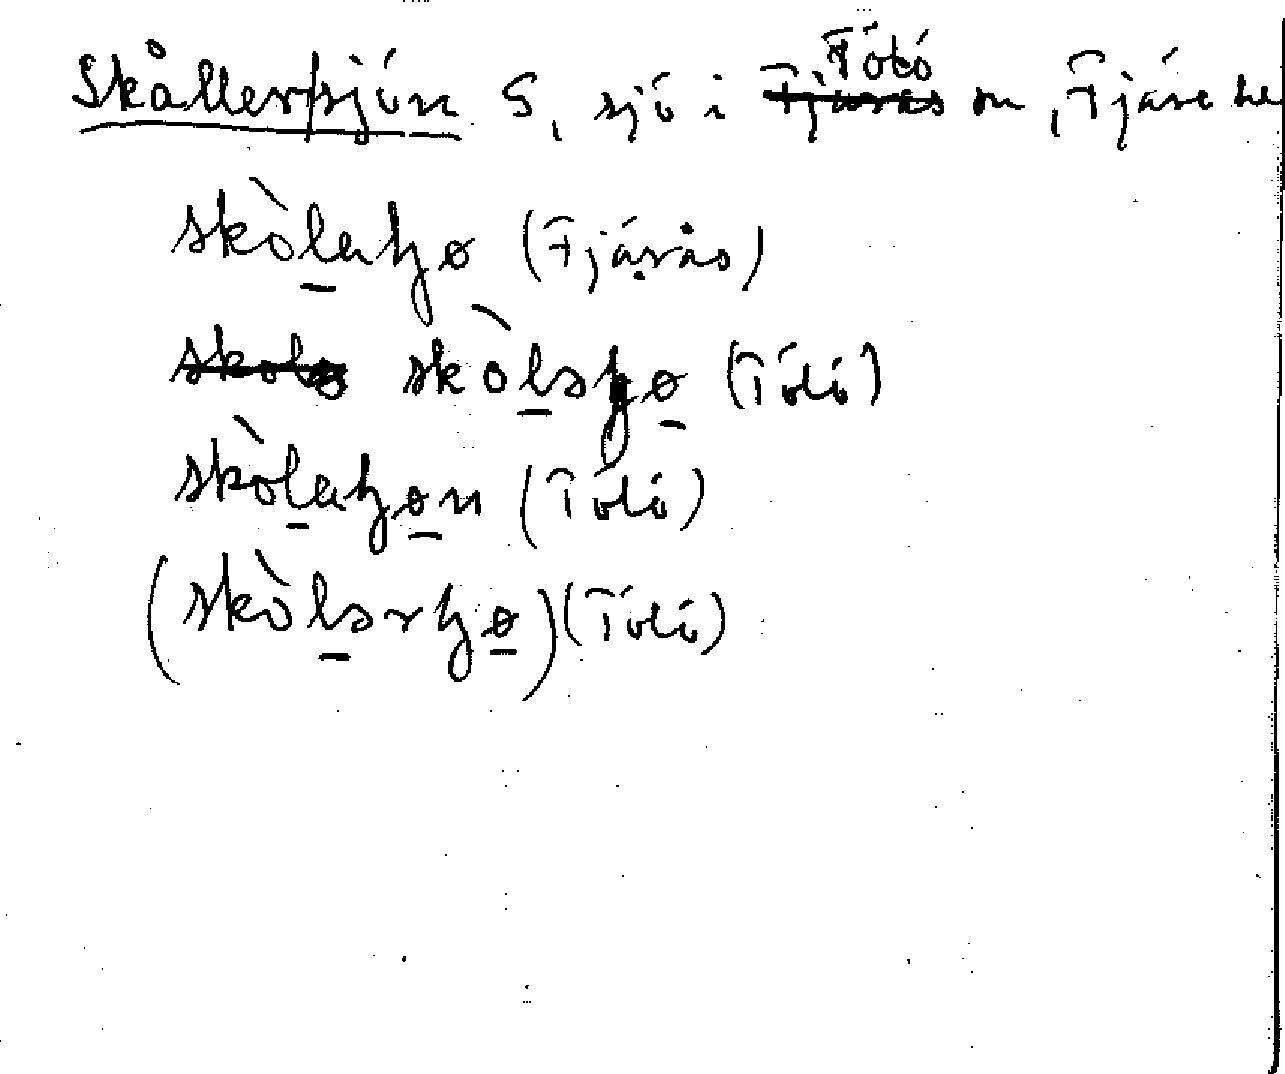 Skållersjön S, sjö i Tölö sn, Fjäre
skòlaʂø (Fjärås)
skòlsʂø (Tölö)
skòlaʂøn (Tölö)
(skòlsrʂø) (Tölö)